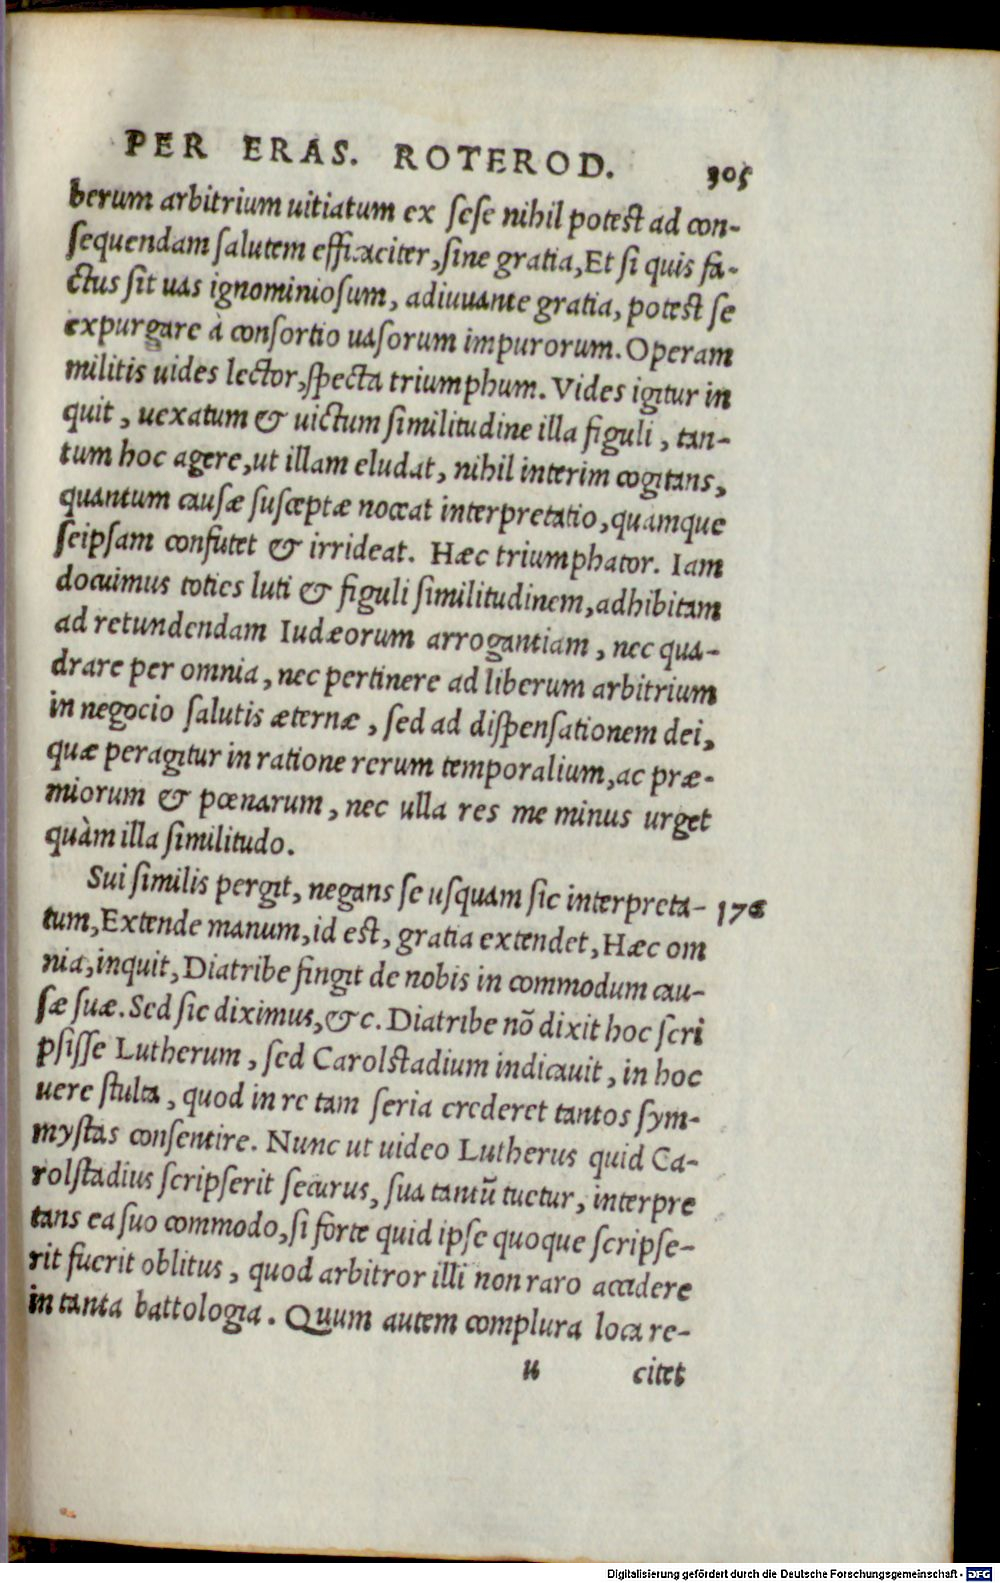 PER ERAS. ROTEROD. 305
berum arbitrium uitiatum ex ſeſe nihil poteſt ad con-
ſequendam ſalutem efficaciter, ſine gratia, Et ſi quis fa-
ctus ſit uas ignominioſum, adiuuante gratia, poteſt ſe
expurgare à conſortio uaſorum impurorum. Operam
militis uides lector, ſpecta triumphum. Vides igitur in
quit, uexatum & uictum ſimilitudine illa figuli, tan-
tum hoc agere, ut illam eludat, nihil interim cogitans,
quantum cauſæ ſuſceptæ noceat interpretatio, quamque
ſeipſam confutet & irrideat. Hæc triumphator. Iam
docuimus toties luti & figuli ſimilitudinem, adhibitam
ad retundendam Iudæorum arrogantiam, nec qua-
drare per omnia, nec pertinere ad liberum arbitrium
in negocio ſalutis æternæ, ſed ad diſpenſationem dei,
quæ peragitur in ratione rerum temporalium, ac præ-
miorum & pœnarum, nec ulla res me minus urget
quàm illa ſimilitudo.
Sui ſimilis pergit, negans ſe uſquam ſic interpreta- 176
tum, Extende manum, id eſt, gratia extendet, Hæc om
nia, inquit, Diatribe fingit de nobis in commodum cau-
ſæ ſuæ. Sed ſic diximus, &c. Diatribe nõ dixit hoc ſcri
pſiſſe Lutherum, ſed Carolſtadium indicauit, in hoc
uere ſtulta, quod in re tam ſeria crederet tantos ſym-
myſtas conſentire. Nunc ut uideo Lutherus quid Ca-
rolſtadius ſcripſerit ſecurus, ſua tantũ tuetur, interpre
tans ea ſuo commodo, ſi forte quid ipſe quoque ſcripſe-
rit fuerit oblitus, quod arbitror illi non raro accidere
in tanta battologia. Quum autem complura loca re-
u citet
Digitalisierung gefördert durch die Deutsche Forschungsgemeinschaft - DFG